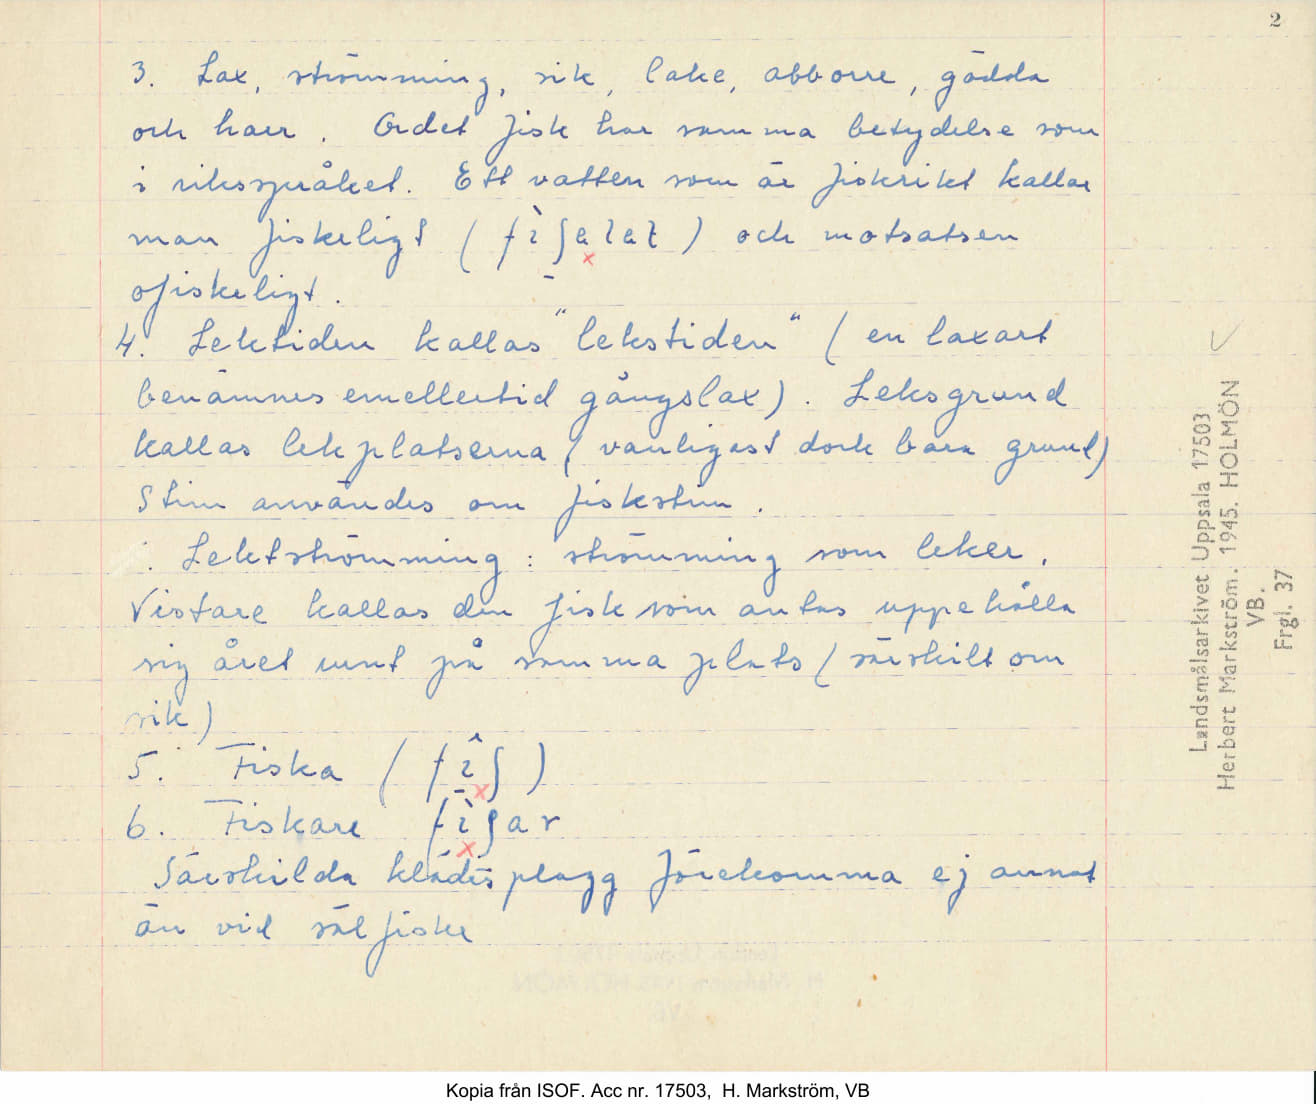 2
3. Lax, strömming, sik, lake, abborre, gädda
och harr. Ordet fisk har samma betydelse som
i riksspråket. Ett vatten som är fiskrikt kallar
man fiskeligt ( ) och motsatsen
ofiskeligt.
4. Lektiden kallas "lekstiden" (en laxart
benämnes emellertid gångslax). Leksgrund
kallas lekplatserna (vanligast dock bara grund)
Stim användes om fiskstim.
. Lektströmming: strömming som leker.
Vistare kallas den fisk som antas uppehålla
sig året runt på samma plats (särskilt om
sik)
5. Fiska ( )
6. Fiskare
Särskilda klädesplagg förekomma ej annat
än vid sälfiske
Landsmålsarkivet Uppsala 17503
Herbert Markström. 1945. HOLMÖN
VB.
Frgl. 37
Kopia från ISOF. Acc nr. 17503, H. Markström, VB